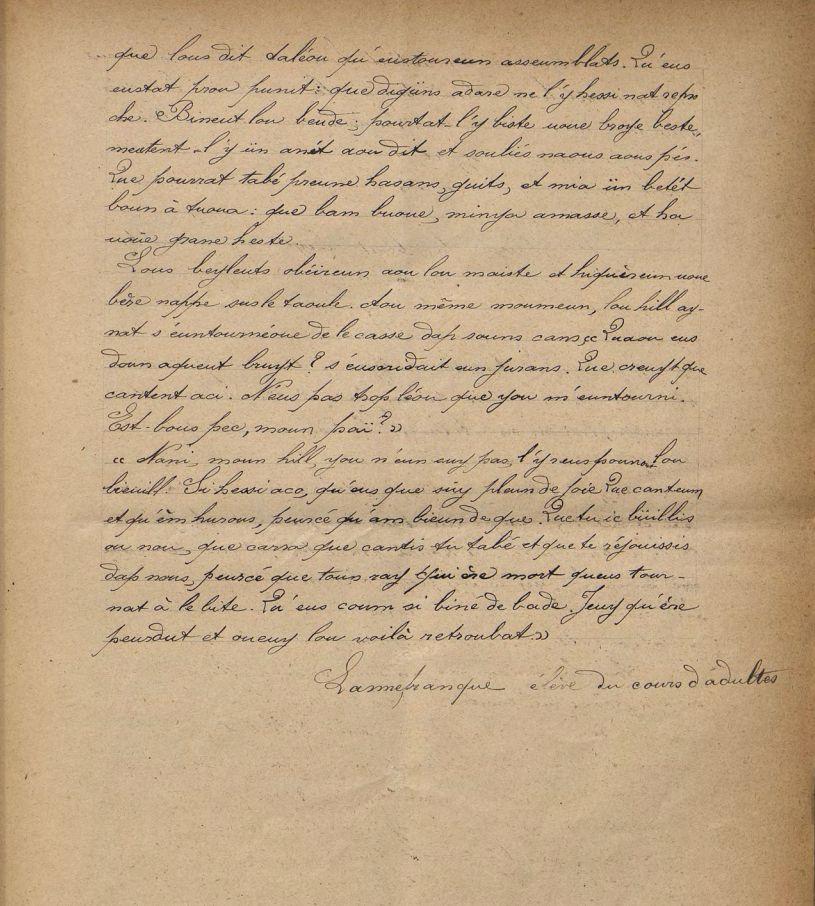 que lous dit taléou qu'eustoureun asseumblats. Qu'eus
eustat prou punit: que digüns adare ne l'y hessi nat repro
che. Bineut lou beude; pourtat-l'y biste uoue broye beste,
meutent-l'y ün anét aou dit et souliés naous aous pés.
Que pourrat tabé preune hasans, guits, et mia ün betét
boun à tuoua: que bam buoue, minya amasse, et ha
uoüe grane heste.
Lous beyleuts obéireun aou lou maiste et hiquèreun uoue
bère nappe sus le taoule. Aou même moumeun, lou hill ay-
nat s'euntournéoue de le casse dap souns cans. « Qu'aou eus
doun aqueut bruyt? s'eus cridait eun jurans. Que creuy que
canteut aci. N'eus pas trop léou que you m'euntourni.
Est-bous pec, moun païr? »
« Nani, moun hill, you n'eun euy pas, l'y reuspoun lou
bieuill. Si hessi aco, qu'eus que suy pleun de joie. Que canteum
et qu'èm hurous, peurcé qu'am bieun de que. Que tu ic büillis
ou nou, que carra que cantis tu tabé et que te réjouissis
dap nous, peurcé que toun ray qui ère mort qu'eus tour-
nat à le bite. Qu'eus coum si biné de bade. Jeuy qu'ère
peurdut et oueuy lou voilà retroubat. »
Lannefranque élève du cours d'adultes